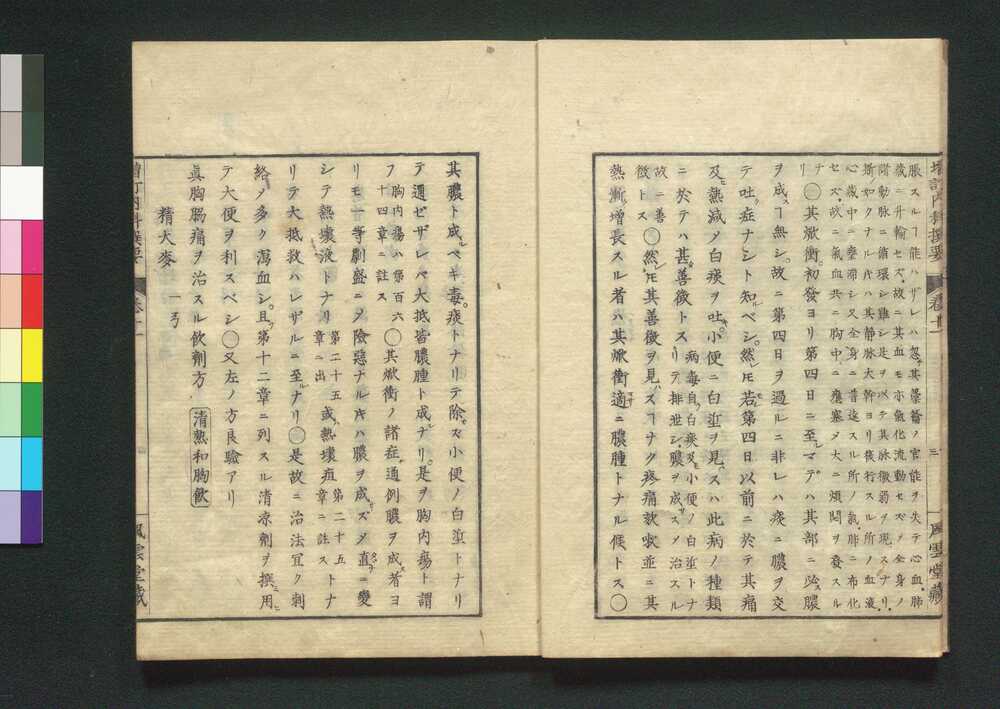 脹スルヿ能ハザレハ忽其臺輪ノ官能ヲ失テ心血肺
蔵ニ升輸セズ故ニ其血モ亦氣化流動セズノ全身ノ
諸動脉ニ循環シ難シ是ヲ以テ其脉微弱ヲ現スナリ
斯如クナル片ハ其静脉大幹ヨリ後行スル所ノ血液
心蔵中ニ壅滞シ又全身ニ普達スル所ノ氣肺ニ布化
セズ故ニ氣血共ニ胸中ニ壅塞メ大ニ煩悶ヲ發スル
ナリ
〇其焮衝初發ヨリ第四日ニ至ルマデハ其部ニ必膿
ヲ成スヿ無シ故ニ第四日ヲ過ルニ非レハ痰ニ膿ヲ交
テ吐ク症ナシト知ルベシ然レ𪜈若シ第四日以前ニ於テ其痛
及ヒ熱減メ白痰ヲ吐キ小便ニ白渣ヲ見ハスハ此病ノ種類
ニ於テハ甚善徴トス
病毒自ラ白痰及ヒ小便ノ白渣トナ
リテ排泄シ膿ヲ成サスノ治スル
故ニ善
徴トス
〇然レ𪜈其善徴ヲ見ハスヿナク疼痛咳嗽並ニ其
熱漸増長スル者ハ其焮衝適ニ膿腫トナル候トス〇
増訂内科撰要
巻十一
三
風雲堂蔵
其膿ト成ルベキ毒痰トナリテ除カズ小便ノ白渣トナリ
テ通ゼザレバ大抵皆膿腫ト成ナリ是ヲ胸内瘍ト謂
フ
胸内瘍ハ第百六
十四章ニ註ス
〇其焮衝ノ諸症通例膿ヲ成ス者ヨ
リモ一等劇盛ニノ險惡ナルキハ膿ヲ成サズメ直ニ變
シテ熱壊液トナリ
第二十五
章ニ出
或ハ熱壊疽
第二十五
章ニ註ス
トナ
リテ大抵救ハレザルニ至ルナリ〇是故ニ治法宜ク刺
絡ノ多ク瀉血シ且ツ第十二章ニ列スル清凉劑ヲ撰用
テ大便ヲ利スベシ〇又左ノ方良驗アリ
眞胸膈痛ヲ治スル飲劑方
清熱和胸飲
精大麥
一弓
増訂内科撰要
巻十一
風雲堂蔵